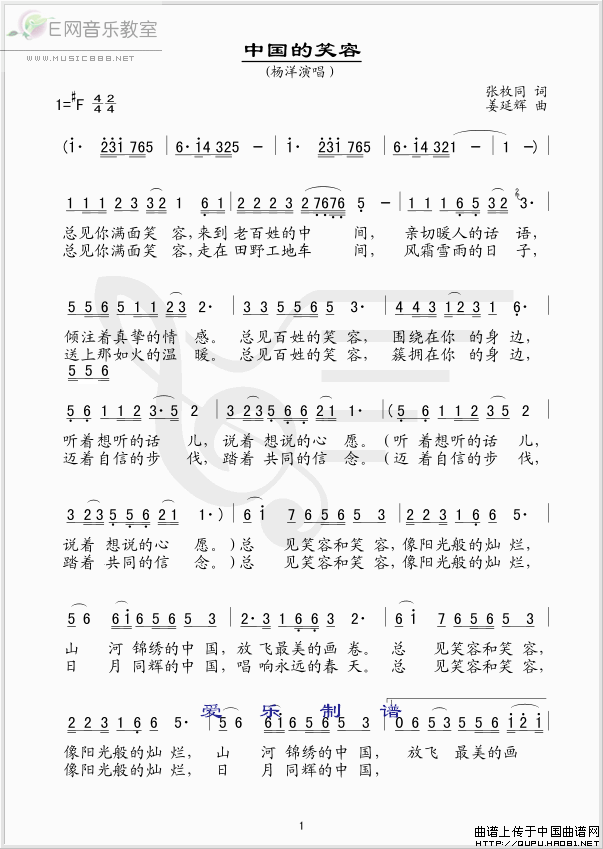 E网音乐教室
WWW.MUSIC888.NET
中国的笑容
(杨洋演唱)
张枚同 词
1=#F 4/4 2/4
姜延辉 曲
(i· 231 765 | 6·i4 325 － | i· 231 765 | 6·i4 321 － | 1 －)
1 1 1 2 3 32 1 61 | 2 2 2 3 2 7676 5 － | 1 1 1 65 32 3·
总见你满面笑 容,来到 老百姓的中 间, 亲切暖人的话 语,
总见你满面笑 容,走在 田野工地车 间, 风霜雪雨的日 子,
5 5 6 5 1 1 2 3 2· | 3 3 5 5 6 5 3· | 4 4 3 1 2 3 1 6·
倾注着真挚的情 感。 总见百姓的笑 容, 围绕在你 的身 边,
送上那如火的温 暖。 总见百姓的笑 容, 簇拥在你 的身 边,
5 5 6
5 6 1 1 2 3·5 2 | 3 2 3 5 6 6 2 1 1· | (5 6 1 1 2 3 5 2
听着想听的话 儿, 说着 想说的心 愿。(听 着想听的话 儿,
迈着自信的步 伐, 踏着 共同的信 念。(迈 着自信的步 伐,
3 2 3 5 5 6 2 1 1·) | 6 i 7 6 5 6 5 3 | 2 2 3 1 6 6 5·
说着 想说的心 愿。)总 见笑容和笑 容,像阳光般的灿 烂,
踏着 共同的信 念。)总 见笑容和笑 容,像阳光般的灿 烂,
5 6 6 i 6 5 6 5 3 | 2· 3 1 6 6 3 2· | 6 i 7 6 5 6 5 3
山 河 锦绣的中 国, 放 飞最美的画 卷。 总 见笑容和笑 容,
日 月 同辉的中 国, 唱 响永远的春 天。 总 见笑容和笑 容,
爱 乐 制 谱
2 2 3 1 6 6 5· | 5 6 6 i 6 5 6 5 3 | 0 6 5 3 5 5 6 i 2 i
像阳光般的灿 烂, 山 河 锦绣的中 国, 放飞 最美的画
像阳光般的灿 烂, 日 月 同辉的中 国,
1
曲谱上传于中国曲谱网
HTTP://QUPU.HAO81.NET